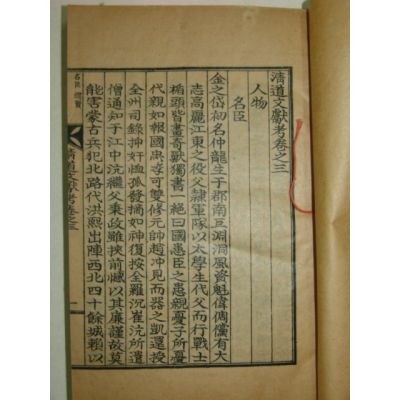 淸道文獻考卷之三
人物
名臣
金之岱初名仲龍生于郡南豆風資魁偉倜儻有大
志高麗江東之役父隷軍隊以太學生代父而行戰士
楯頭皆畫奇獸獨書一絕曰國患臣之患親憂子所憂
代親如報國忠孝可雙修元帥趙冲見而器之凱還授
全州司錄抻奸恤孤發摘如神復按全羅沉崔沆所遣
僧通知于江中沆繼父秉政雖挾前憾以其廉謹故莫
能害蒙古兵犯北路代洪熙出陣西北四十餘城賴以
淸道文獻考卷之三
一